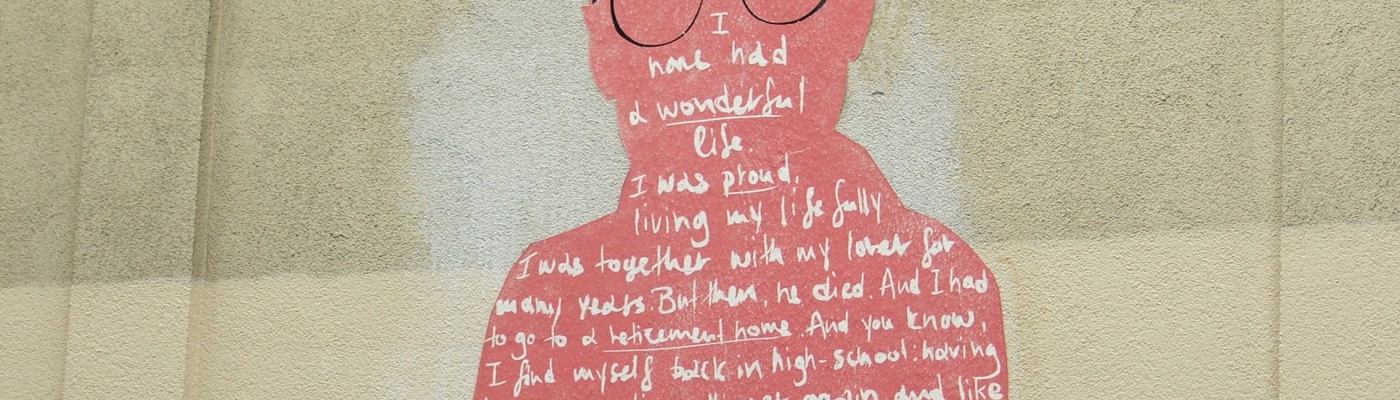 I
have had
a wonderful
life.
I was proud,
living my life fully
I was together with my lover for
many years. But then, he died. And I had
to go to a retirement home. And you know,
I find myself back in high-school: having
again and like